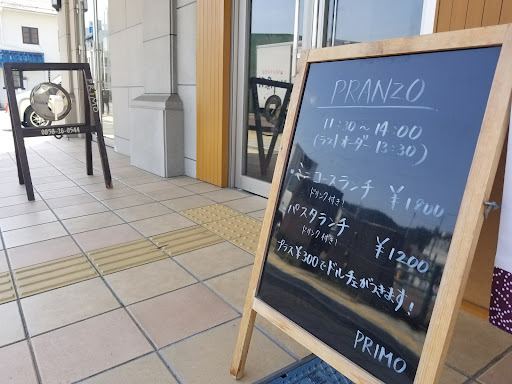 PRANZO
11:30～14:00
(ラストオーダー 13:30)
・ミニコースランチ ¥1800
ドリンク付き!
パスタランチ ¥1200
ドリンク付き!
プラス¥300でドルチェがつきます!
PRIMO
0858-36-0544